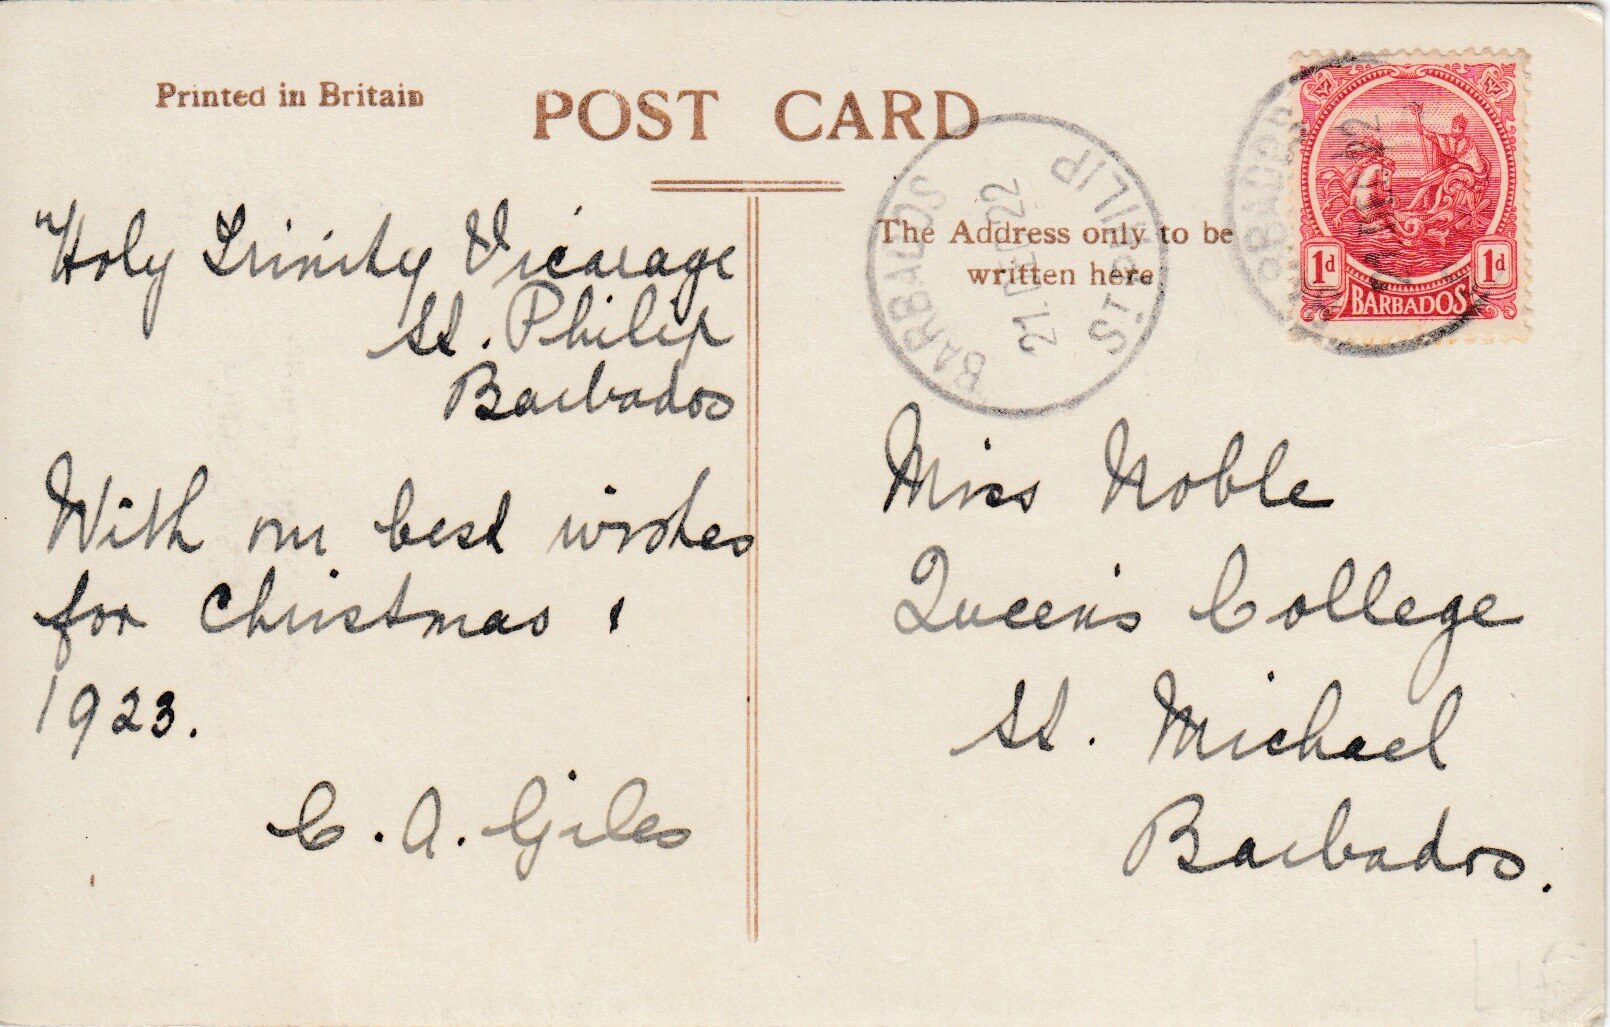 Printed in Britain
POST CARD
The Address only to be
written here
Holy Trinity Vicarage
St. Philip
Barbados
With our best wishes
for Christmas &
1923.
C. A. Giles
BARBADOS
21 DE 22
ST PHILIP
1d
1d
BARBADOS
Miss Noble
Queen's College
St. Michael
Barbados.